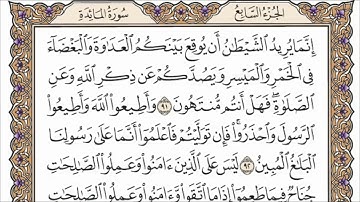 الجزء السابع سورة المائدة
إِنَّمَا يُرِيدُ ٱلشَّيْطَٰنُ أَن يُوقِعَ بَيْنَكُمُ ٱلْعَدَٰوَةَ وَٱلْبَغْضَآءَ
فِى ٱلْخَمْرِ وَٱلْمَيْسِرِ وَيَصُدَّكُمْ عَن ذِكْرِ ٱللَّهِ وَعَنِ
ٱلصَّلَوٰةِ ۖ فَهَلْ أَنتُم مُّنتَهُونَ ۝٩١ وَأَطِيعُوا۟ ٱللَّهَ وَأَطِيعُوا۟
ٱلرَّسُولَ وَٱحْذَرُوا۟ ۚ فَإِن تَوَلَّيْتُمْ فَٱعْلَمُوٓا۟ أَنَّمَا عَلَىٰ رَسُولِنَا
ٱلْبَلَٰغُ ٱلْمُبِينُ ۝٩٢ لَيْسَ عَلَى ٱلَّذِينَ ءَامَنُوا۟ وَعَمِلُوا۟ ٱلصَّٰلِحَٰتِ
جُنَاحٌ فِيمَا طَعِمُوٓا۟ إِذَا مَا ٱتَّقَوا۟ وَّءَامَنُوا۟ وَعَمِلُوا۟ ٱلصَّٰلِحَٰتِ